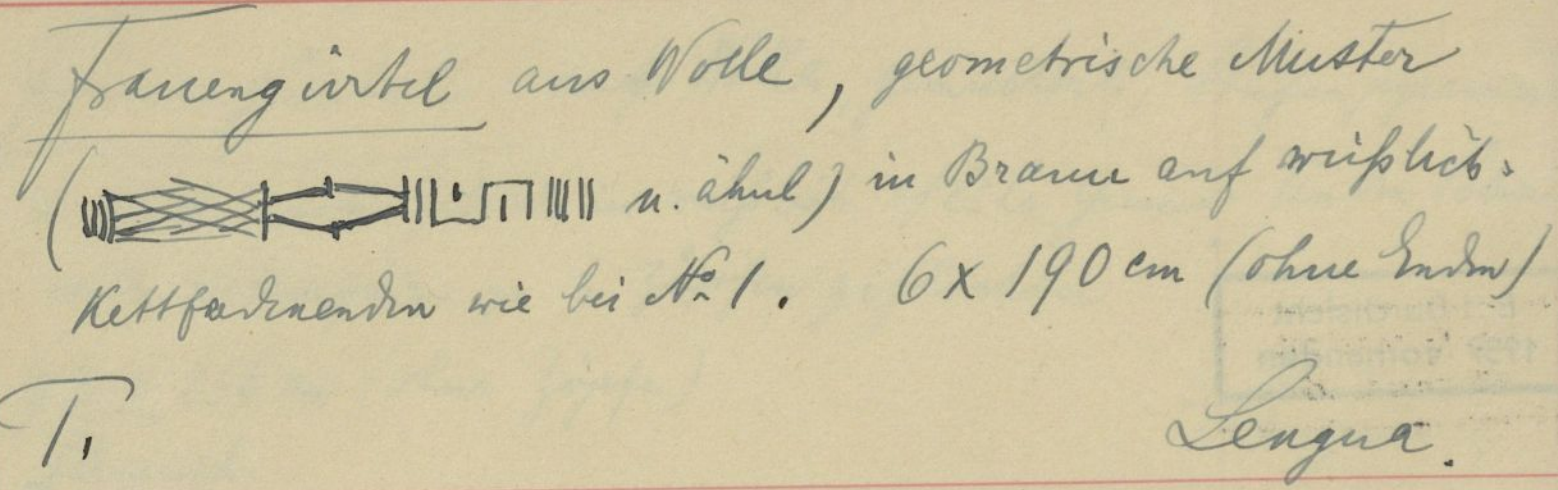 Frauengürtel aus Wolle, geometrische Muster
( u. ähnl) in Braun auf weißlich.
Kettfadenenden wie bei No 1. 6 x 190 cm (ohne Enden)
T. Lengua.